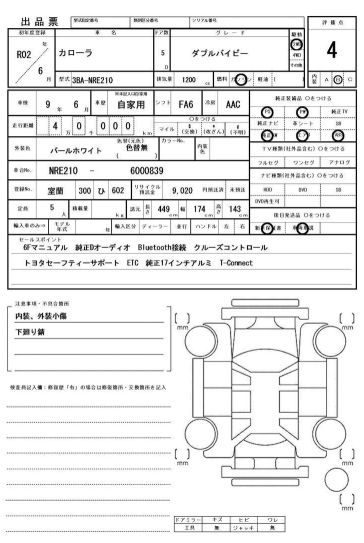 出品票 型式指定番号 類別区分番号 シリアル番号 評価点
初年度登録 車名 ドア数 グレード 駆動
R02年 6月 カローラ 5D ダブルバイビー 2WD 4WD その他 4
型式 3BA-NRE210 排気量 1200cc 燃料 ガソリン 軽油 ( ) 内装 A B C
車検 9年 6月 車歴 自家用 シフト FA6 冷房 AAC 純正装備品 ○をつける
走行距離 4万0千000km マイル (交換) (改ざん) (不明) PS PW 純正TV
純正ナビ 革シート SR
外装色 パールホワイト 色替(元色) 色替無 ( ) カラーNo. 内装色
TV種類(社外品含む) ○をつける
フルセグ ワンセグ アナログ
車台No. NRE210 - 6000839
ナビ種類(社外品含む) ○をつける
HDD DVD SD
登録No. 室蘭 300 ひ 602 リサイクル預託金 9,020 円預託済 未預託
DVD再生可
定員 5人 積載量 kg 諸元 長さ 449cm 幅 174cm 高さ 143cm
後日発送品 ○をつける
輸入車のみ○→ モデル年式 年 輸入区分 ディーラー 並行 ハンドル 左 右
セールスポイント
6Fマニュアル 純正Dオーディオ Bluetooth接続 クルーズコントロール
トヨタセーフティーサポート ETC 純正17インチアルミ T-Connect
注意事項・不具合箇所
内装、外装小傷
下廻り錆
検査員記入欄:修復歴「有」の場合は修復箇所・交換箇所を記入
mm
mm
mm
mm
ドアミラー キズ ヒビ ワレ
工具 無 ジャッキ 無